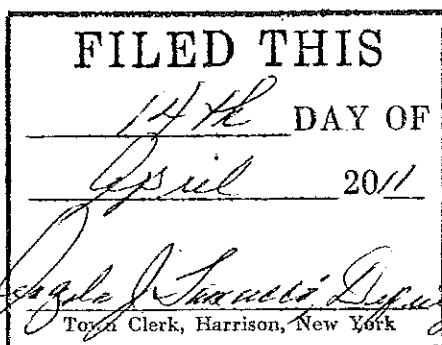 FILED THIS
14th DAY OF
April 2011
J.
Town Clerk, Harrison, New York